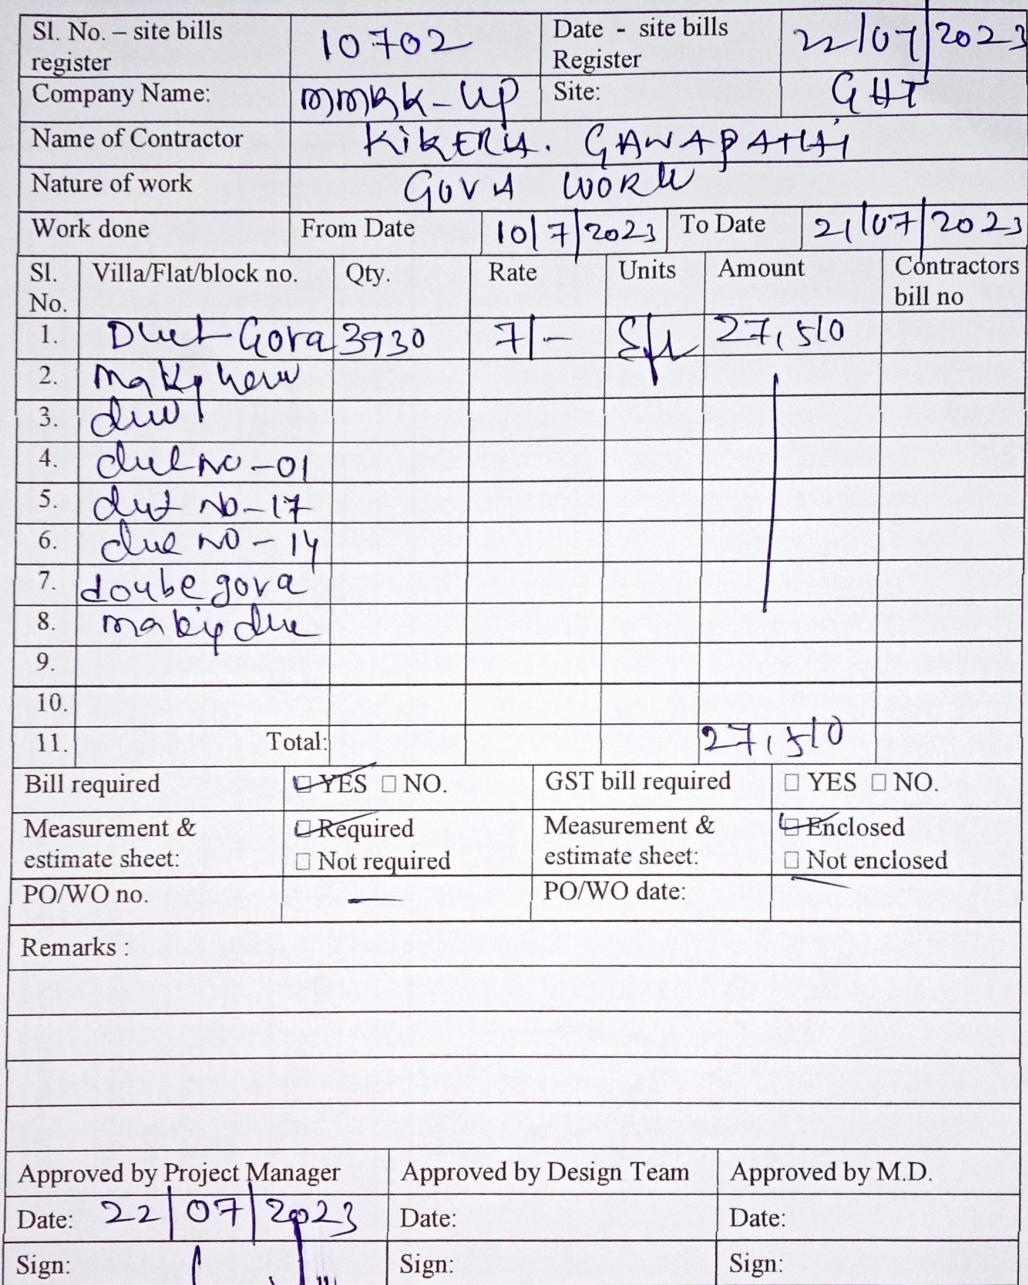 Sl. No. – site bills register 10702 Date - site bills Register 22/07/2023
Company Name: Site: GHT
Name of Contractor GANAPATHI
Nature of work GOVA WORK
Work done From Date 10/7/2023 To Date 21/07/2023
Sl. No. Villa/Flat/block no. Qty. Rate Units Amount Contractors bill no
1. Gova 3930 7/- Sft 27,510
2.
3.
4. NO-01
5. NO-17
6. NO-14
7. gova
8.
9.
10.
11. Total: 27,510
Bill required YES NO. GST bill required YES NO.
Measurement & estimate sheet: Required Not required Measurement & estimate sheet: Enclosed Not enclosed
PO/WO no. - PO/WO date:
Remarks :
Approved by Project Manager Approved by Design Team Approved by M.D.
Date: 22/07/2023 Date: Date:
Sign: Sign: Sign: